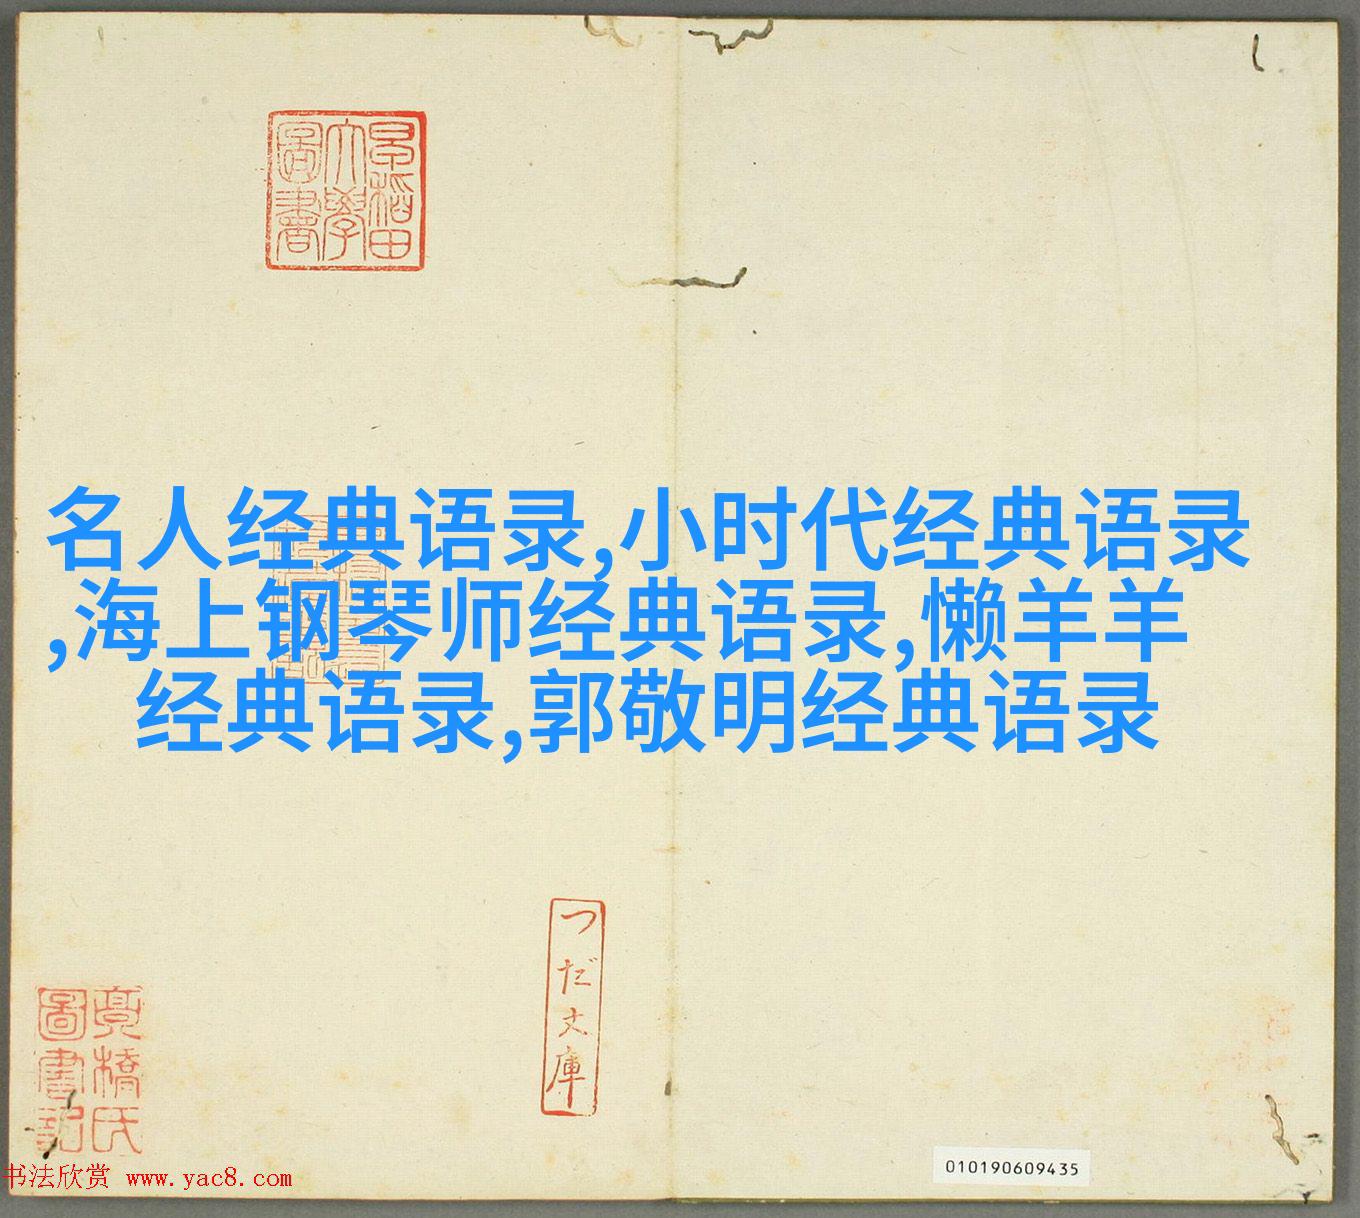 早稻田
大學
圖書
名人经典语录,小时代经典语录
,海上钢琴师经典语录,懒羊羊
经典语录,郭敬明经典语录
つだ文庫
橋氏
圖書記
书法欣赏 www.yac8.com
010190609435